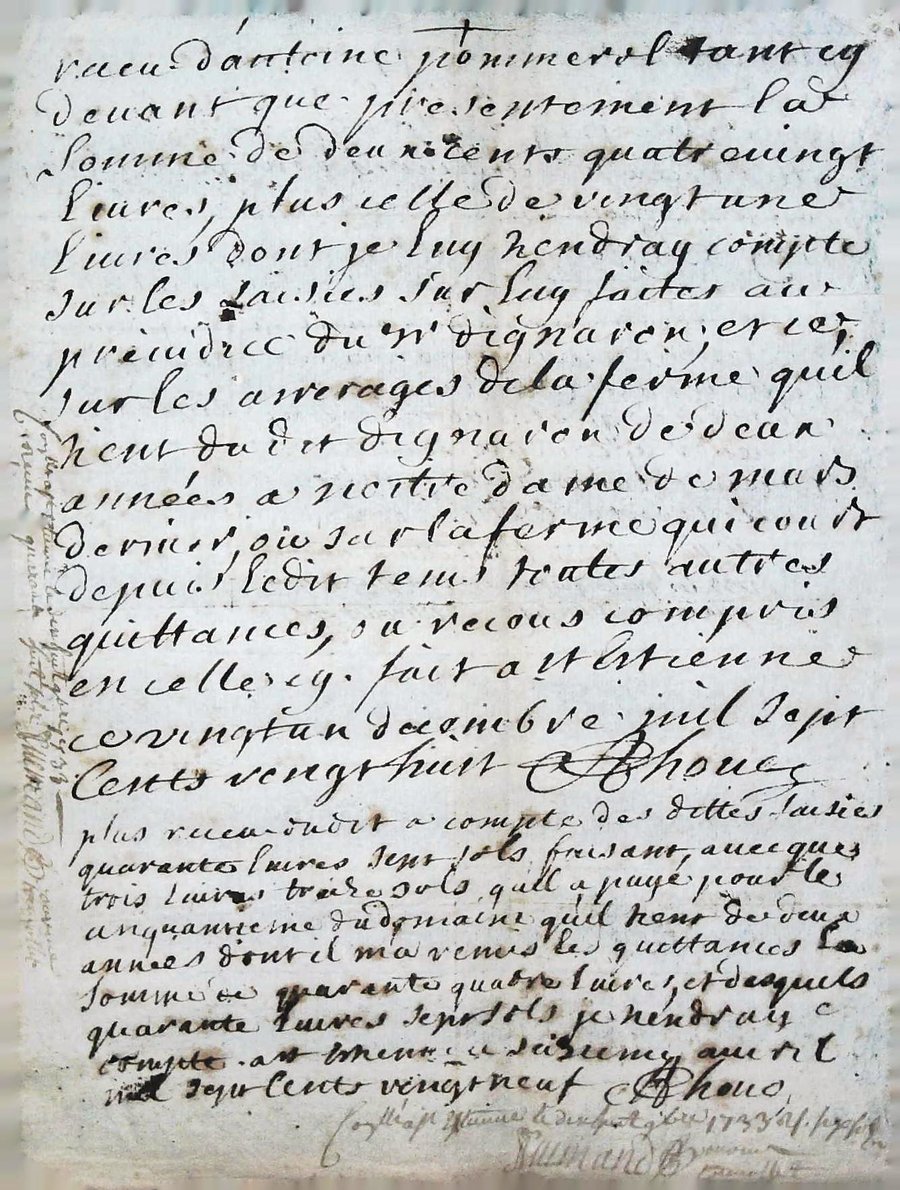 receu d'antoine pommerol tant cy
devant que presentement la
somme de deux cents quatrevingt
livres, plus celle de vingt une
livres dont je luy tiendray compte
sur les saisies sur luy faites au
prejudice du Sr dignaron, et ce
sur les arrerages de la ferme qu'il
tient du dit dignaron de deux
années a nottre dame de mars
dernier, ou sur la ferme qui court
depuis ledit tems toutes autres
quittances, ou receus compris
en celle cy. fait a st Estienne
ce vingt un decembre mil sept
cents vengt huit
plus receu dudit a compte des dittes saisies
quarante livres sept sols faisant, avec ques
trois livres treize sols quil a payé pour le
cinquantieme du domaine qu'il tient de deux
années dont il m'a remis les quittances la
somme de quarante quatre livres, et desquels
quarante livres sept sols je tiendray
compte. a st etienne ce seizieme avril
mil sept cents vingt neuf
1733